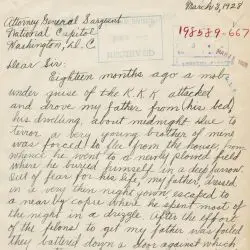 March 3, 1928
Attorney General Sargent
National Capitol
Washington, D.C.
198589-667
Dear Sir:
Eighteen months ago a mob
under guise of the K.K.K. attacked
and drove my father from his bed,
his dwelling, about midnight. Due to
terror a very young brother of mine
was forced to flee from the house, from
whence he went to a newly plowed field
where he buried himself in a deep furrow
out of fear for his life, my father, dressed
in a very thin night gown escaped to
a near by copse where he spent most of
the night in a drizzle. After the effort
of the felons to get my father was foiled
they battered down a door against which